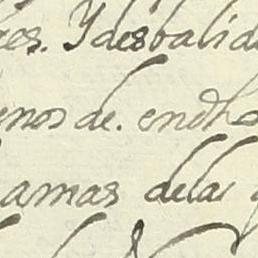 es. Y desbalid
nos de. endho
amas delas